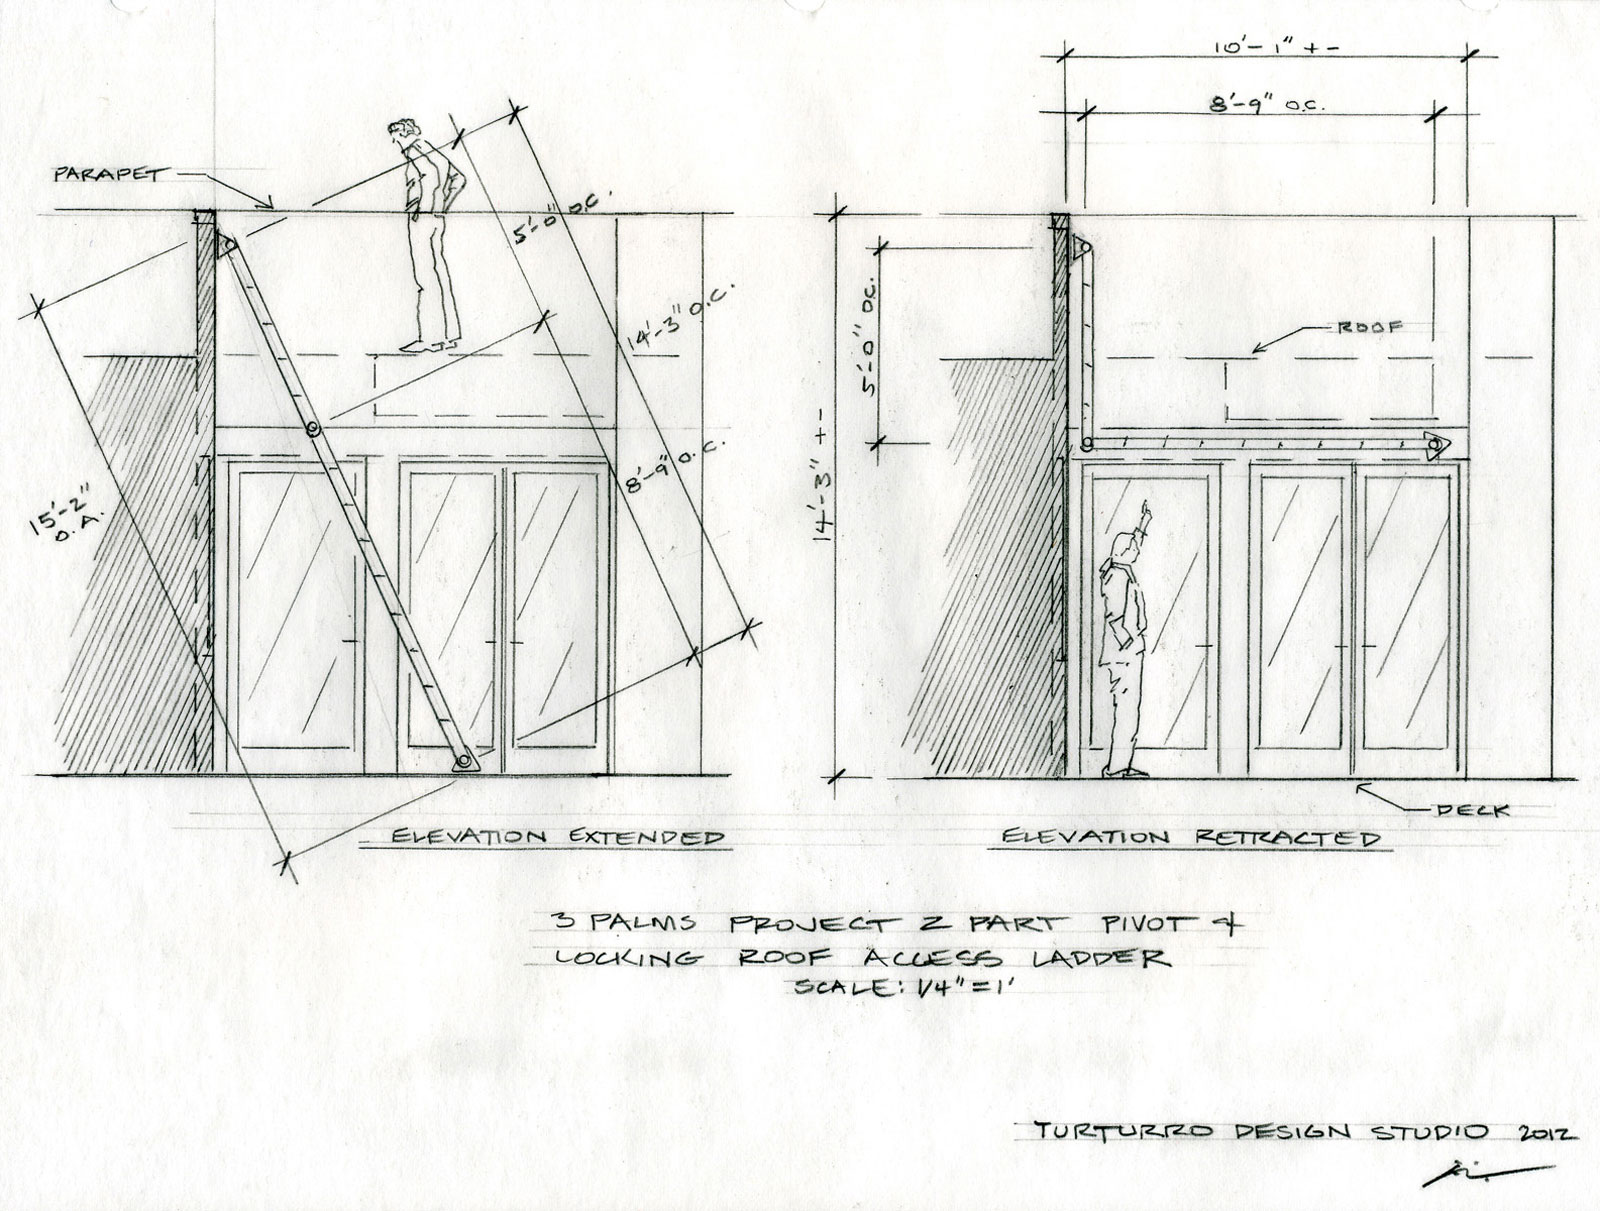 PARAPET
5'-0" O.C.
14'-3" O.C.
8'-9" O.C.
15'-2"
O.A.
ELEVATION EXTENDED
10'-1" + -
8'-9" O.C.
ROOF
5'-0" O.C.
14'-3" + -
DECK
ELEVATION RETRACTED
3 PALMS PROJECT 2 PART PIVOT &
LOCKING ROOF ACCESS LADDER
SCALE: 1/4" = 1'
TURTURRO DESIGN STUDIO 2012